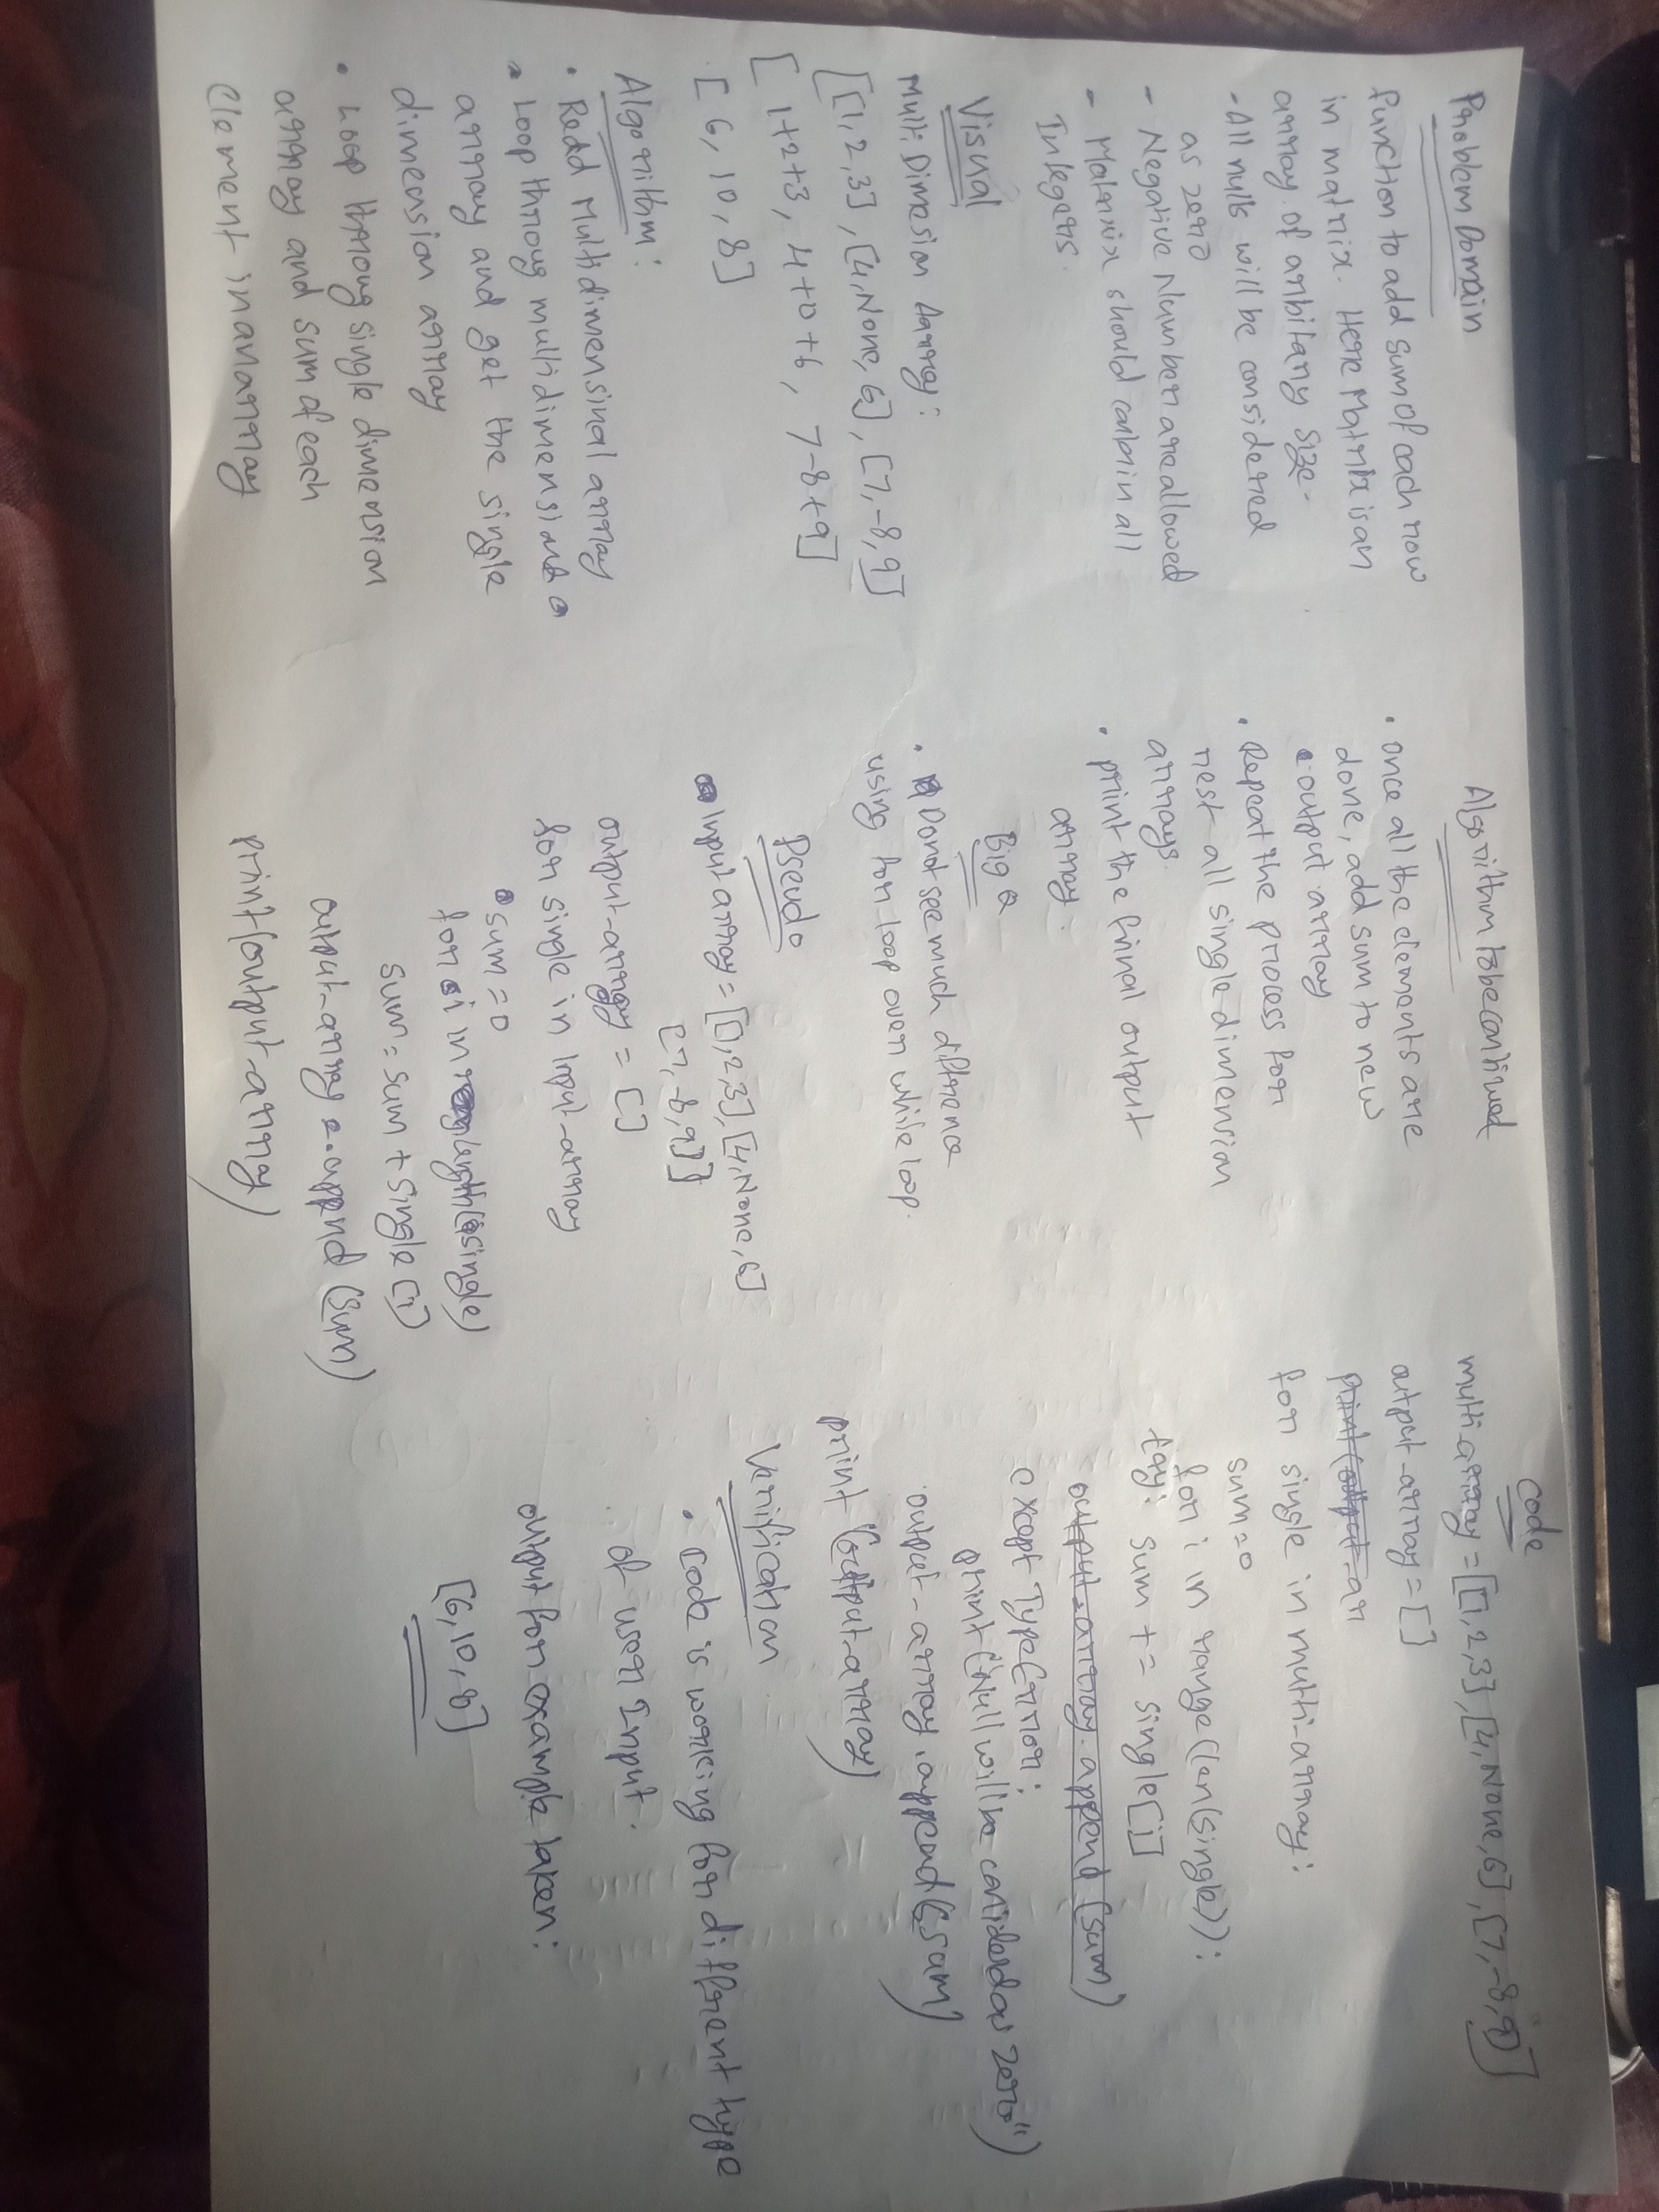 Problem Domain
function to add sum of each row
in matrix. Here Matrix is an
array of arbitary size.
- All nulls will be considered
as zero
- Negative Number are allowed
- Matrix should contain all
Integers.
Visual
Multi Dimesion Array:
[[1,2,3],[4,None,6],[7,-8,9]]
[1+2+3, 4+0+6, 7-8+9]
[6, 10, 8]
Algorithm:
• Read Multidimensinal array
• Loop throug multidimensional
array and get the single
dimension array
• Loop throug single dimension
array and sum of each
element in an array
Algorithm to be continued
• once all the elements are
done, add sum to new
output array
• Repeat the process for
rest all single dimension
arrays.
• print the final output
array.
Big O
• Dont see much diffrence
using for loop over while loop.
Pseudo
Input array = [[1,2,3],[4,None,6]
[7,-8,9]]
output-array = []
for single in input-array
sum = 0
for i in length(single)
sum = sum + single[i]
output-array.append(sum)
print(output-array)
Code
multi-array = [[1,2,3],[4,None,6],[7,-8,9]]
output-array = []
print(output-ar
for single in multi-array:
sum=0
for i in range(len(single)):
try: sum += single[i]
output-array.append(sum)
except TypeError:
print("Null will be considerd as zero")
output-array.append(sum)
print(output-array)
Verification
• Code is working for diffrent type
of user Input.
output for example taken:
[6,10,8]